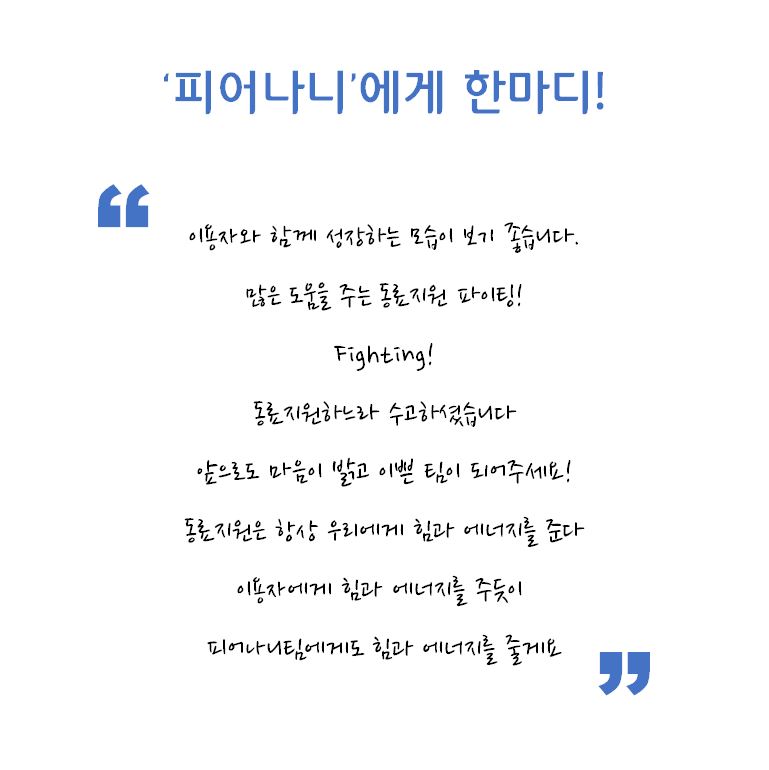 ‘피어나니’에게 한마디!
“
이용자와 함께 성장하는 모습이 보기 좋습니다.
많은 도움을 주는 동료지원 파이팅!
Fighting!
동료지원하느라 수고하셨습니다
앞으로도 마음이 밝고 이쁜 팀이 되어주세요!
동료지원은 항상 우리에게 힘과 에너지를 준다
이용자에게 힘과 에너지를 주듯이
피어나니팀에게도 힘과 에너지를 줄게요
”